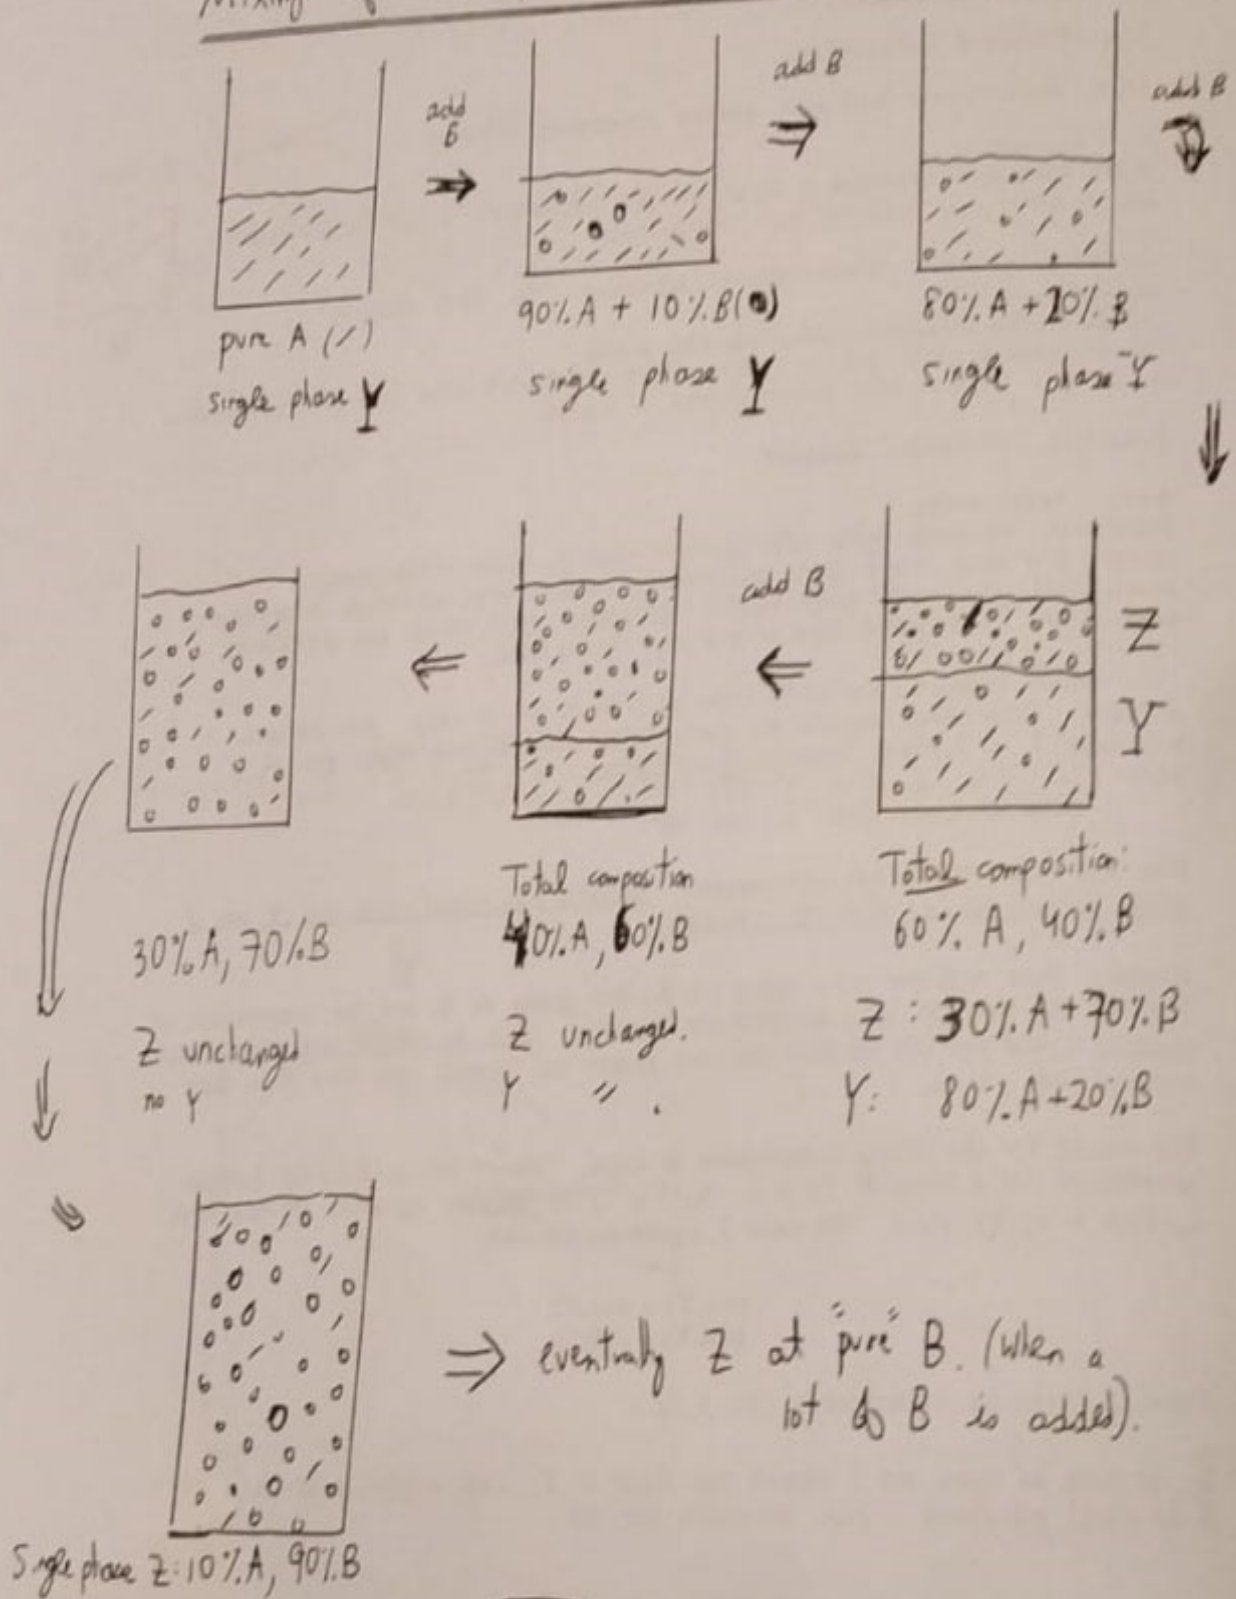 Mixing of
add
B
add B
add B
pure A (/)
single phase Y
90% A + 10% B(o)
single phase Y
80% A + 20% B
single phase Y
add B
Z
Y
30% A, 70% B
Z unchanged
no Y
Total composition
40% A, 60% B
Z unchanged.
Y " .
Total composition:
60% A, 40% B
Z : 30% A + 70% B
Y: 80% A + 20% B
⇒ eventually Z at "pure" B. (when a
lot of B is added).
Single phase Z: 10% A, 90% B